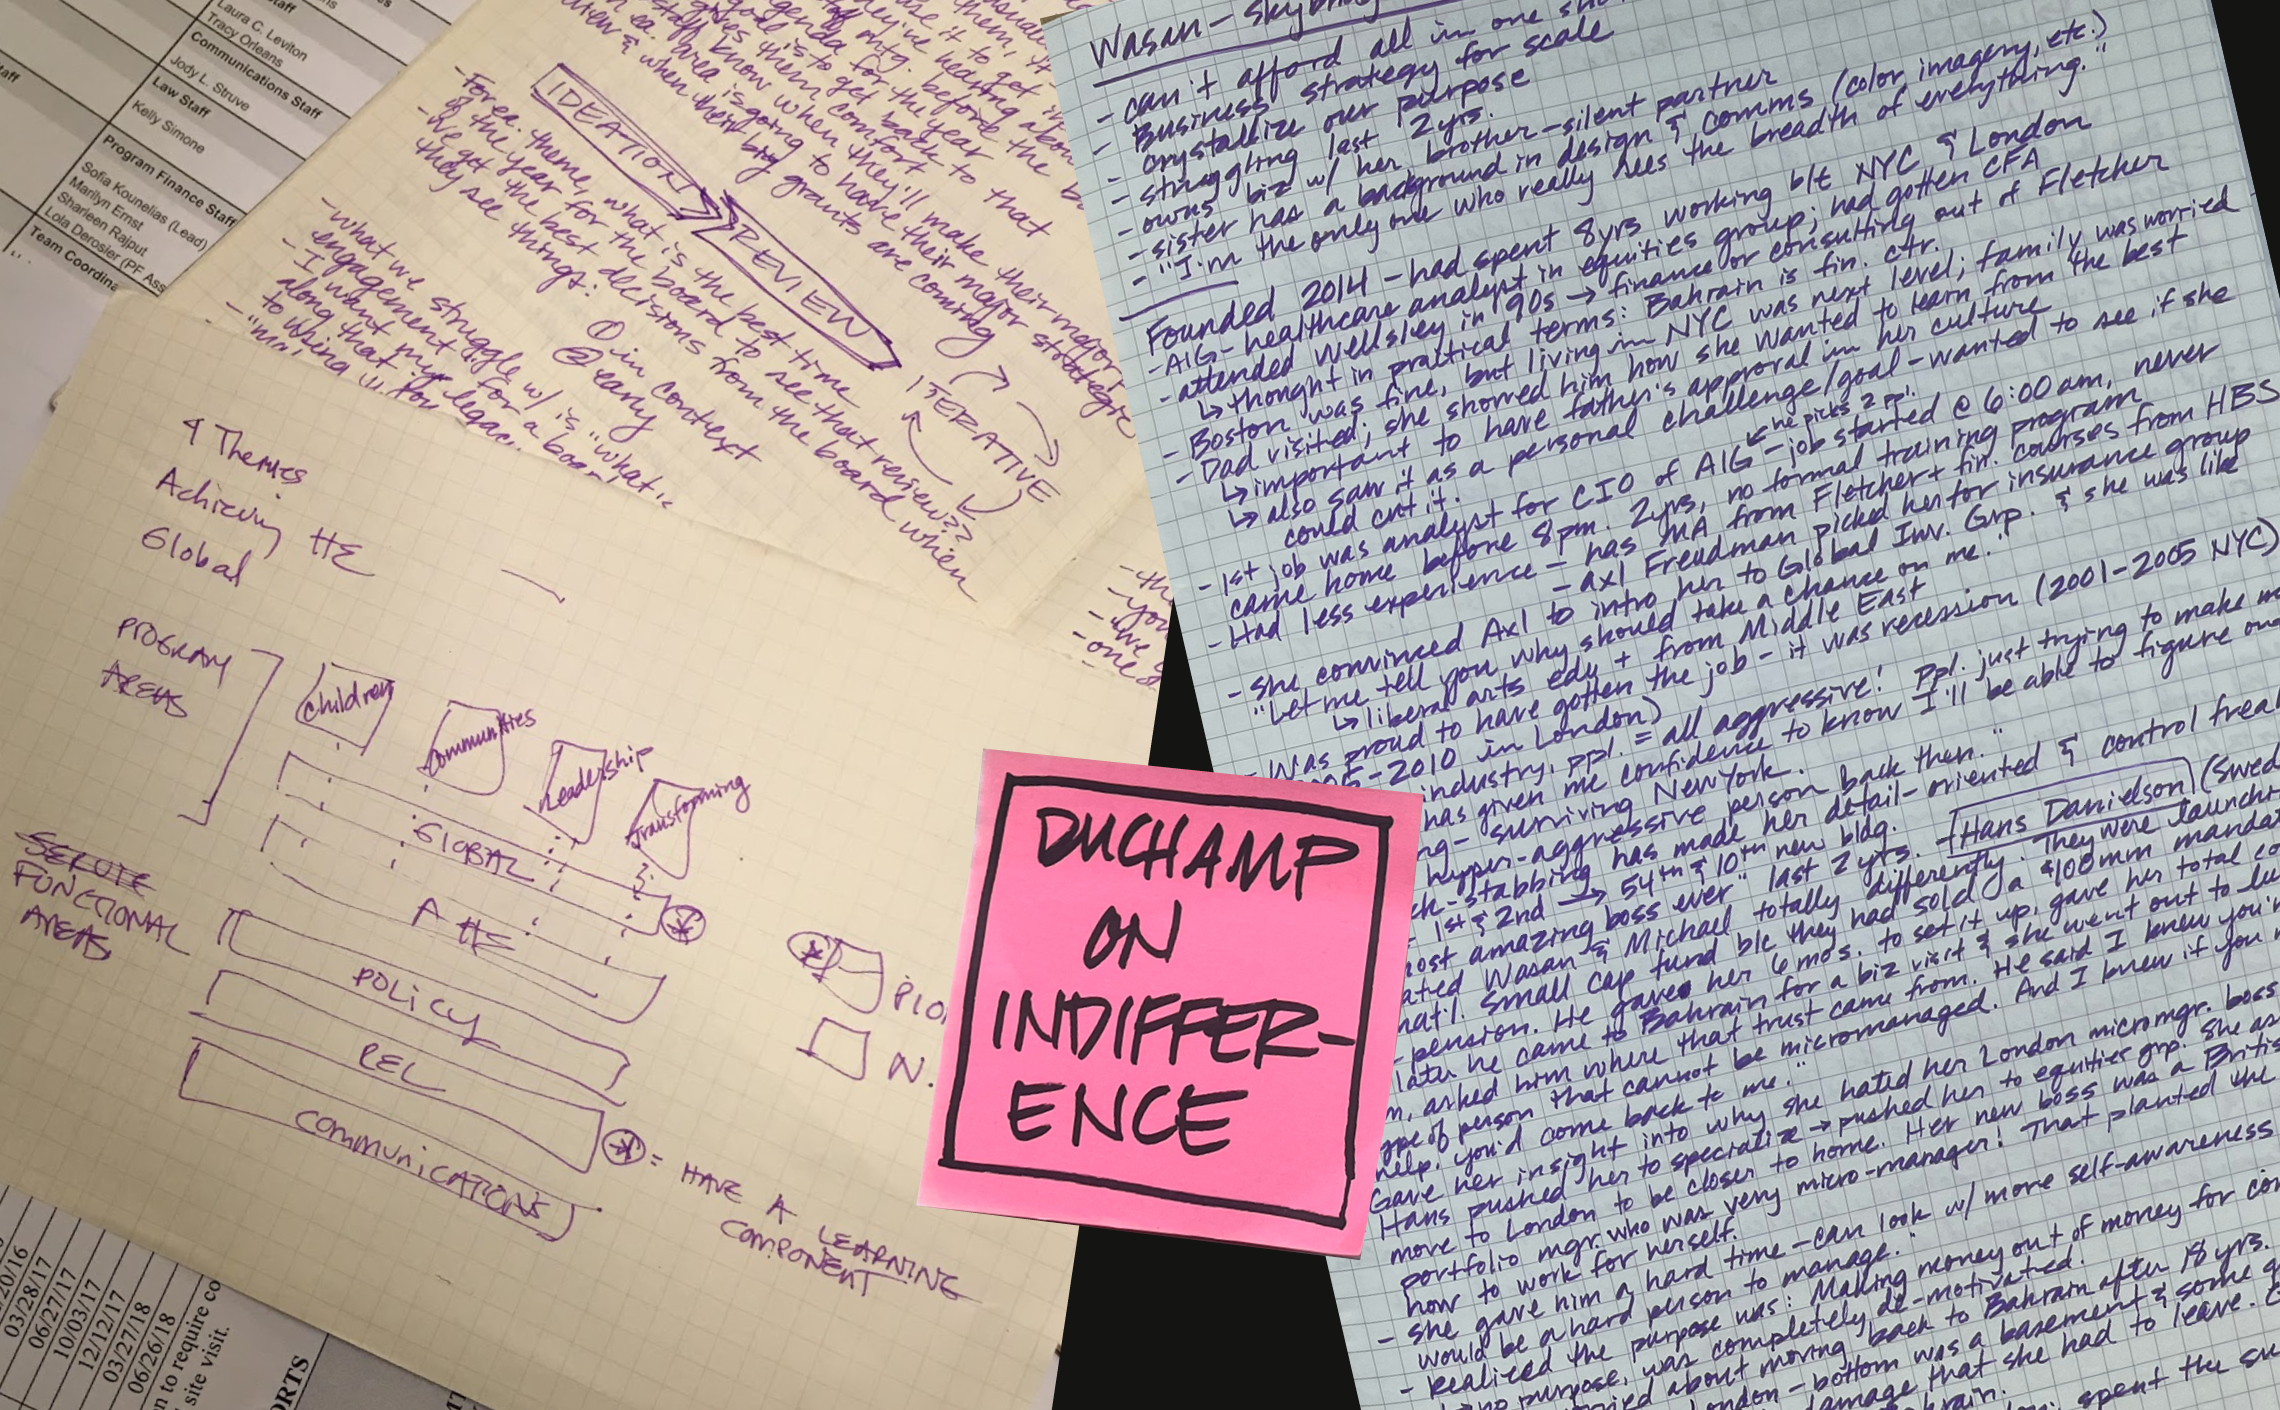 Laura C. Leviton
Tracy Orleans
Communications Staff
Jody L. Struve
Law Staff
Kelly Simone
Program Finance Staff
Sofia Kounelias (Lead)
Marilyn Ernst
Sharleen Rajput
Lola Derosier (PF Ass
Team Coordina
goal is to get back to that
agenda for the year
gives them comfort
staff know when they'll make their major
ea. area is going to have their major strategic
view & when their big grants are coming
IDEATION
REVIEW
ITERATIVE
- For ea. theme, what is the best time
of the year for the board to see that review??
- We get the best decisions from the board when
they see things:
① in context
② early
- what we struggle w/ is "what is
engagement
- I want my legac
along that
to using
4 Themes
Achieving HE
Global
PROGRAM
AREAS
Children
Communities
Leadership
Transforming
GLOBAL
A HE
SERVICE
FUNCTIONAL
AREAS
POLICY
REL
COMMUNICATIONS
* = HAVE A LEARNING
COMPONENT
N.
03/28/17
06/27/17
10/03/17
12/12/17
03/27/18
06/26/18
n to require co
site visit.
ORTS
DUCHAMP
ON
INDIFFER-
ENCE
Wasan - Skybridg
- can't afford all in one sh
- Business strategy for scale
- crystallize our purpose
- struggling last 2yrs.
- owns biz w/ her brother - silent partner
- sister has a background in design & comms (color imagery, etc.)
- "I'm the only one who really sees the breadth of everything."
Founded 2014 - had spent 8yrs working b/t NYC & London
- AIG - healthcare analyst in equities group; had gotten CFA
- attended Wellsley in '90s → finance or consulting out of Fletcher
↳ thought in practical terms: Bahrain is fin. ctr.
- Boston was fine, but living in NYC was next level; family was worried
- Dad visited; she showed him how she wanted to learn from the best
↳ important to have father's approval in her culture
↳ also saw it as a personal challenge/goal - wanted to see if she
could cut it.
he picks 2 ppl.
- 1st job was analyst for CIO of AIG - job started @ 6:00am, never
came home before 8pm. 2yrs, no formal training program
- Had less experience - has MA from Fletcher + fin. courses from HBS
- Axl Freudman picked her for insurance group
- she convinced Axl to intro her to Global Inv. Grp. & she was like
"Let me tell you why should take a chance on me."
↳ liberal arts edu + from Middle East
- Was proud to have gotten the job - it was recession (2001-2005 NYC)
05-2010 in London)
industry, ppl. = all aggressive! Ppl. just trying to make m
has given me confidence to know I'll be able to figure ou
ng - surviving New York.
hyper-aggressive person back then."
ck-stabbing has made her detail-oriented & control freak
1st & 2nd → 54th & 10th new bldg.
most amazing boss ever" last 2 yrs. - Hans Danielson (Swed
ated Wasan & Michael totally differently. They were launchi
nat'l. small cap fund b/c they had sold a $100mm mandat
- pension. He gave her 6mos. to set it up, gave her total co
later he came to Bahrain for a biz visit & she went out to lu
m, asked him where that trust came from. He said I knew you'r
ype of person that cannot be micromanaged. And I knew if you n
help. you'd come back to me."
Gave her insight into why she hated her London micromgr. boss
Hans pushed her to specialize → pushed her to equities grp. She as
move to London to be closer to home. Her new boss was a Britis
portfolio mgr. who was very micro-manager! That planted the
how to work for herself.
- she gave him a hard time - can look w/ more self-awareness
would be a hard person to manage.
- Realized the purpose was: Making money out of money for co
↳ no purpose, was completely de-motivated.
ried about moving back to Bahrain after 18yrs.
London - bottom was a basement & some g
damage that she had to leave.
rain.
spent the su